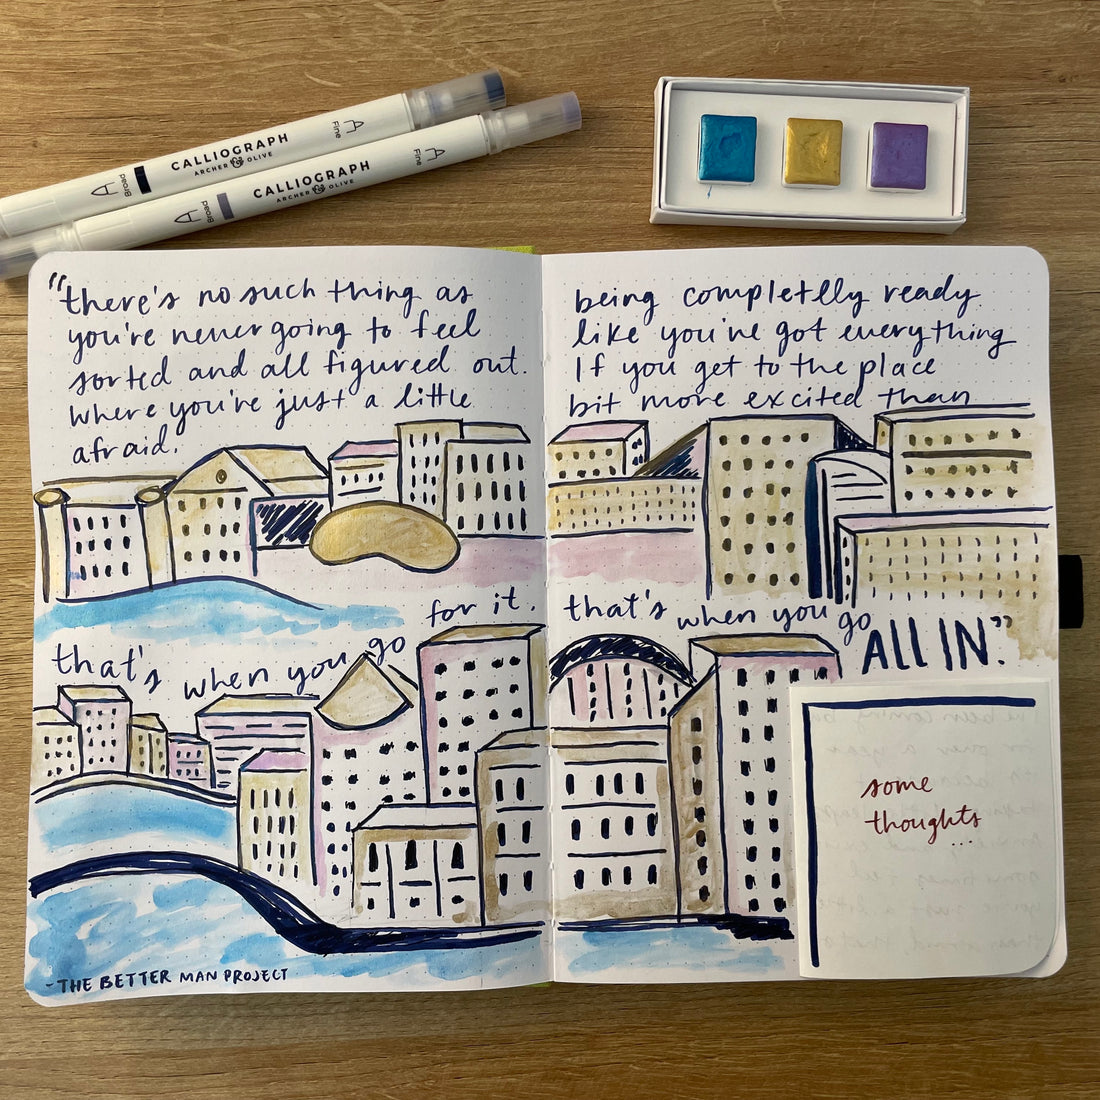 A Fine
CALLIOGRAPH
ARCHER & OLIVE
A Broad
A Fine
CALLIOGRAPH
ARCHER & OLIVE
A Broad
"there's no such thing as being completlly ready.
you're never going to feel like you've got everything
sorted and all figured out. If you get to the place
where you're just a little bit more excited than
afraid.
that's when you go for it. that's when you go ALL IN."
some
thoughts
...
- THE BETTER MAN PROJECT